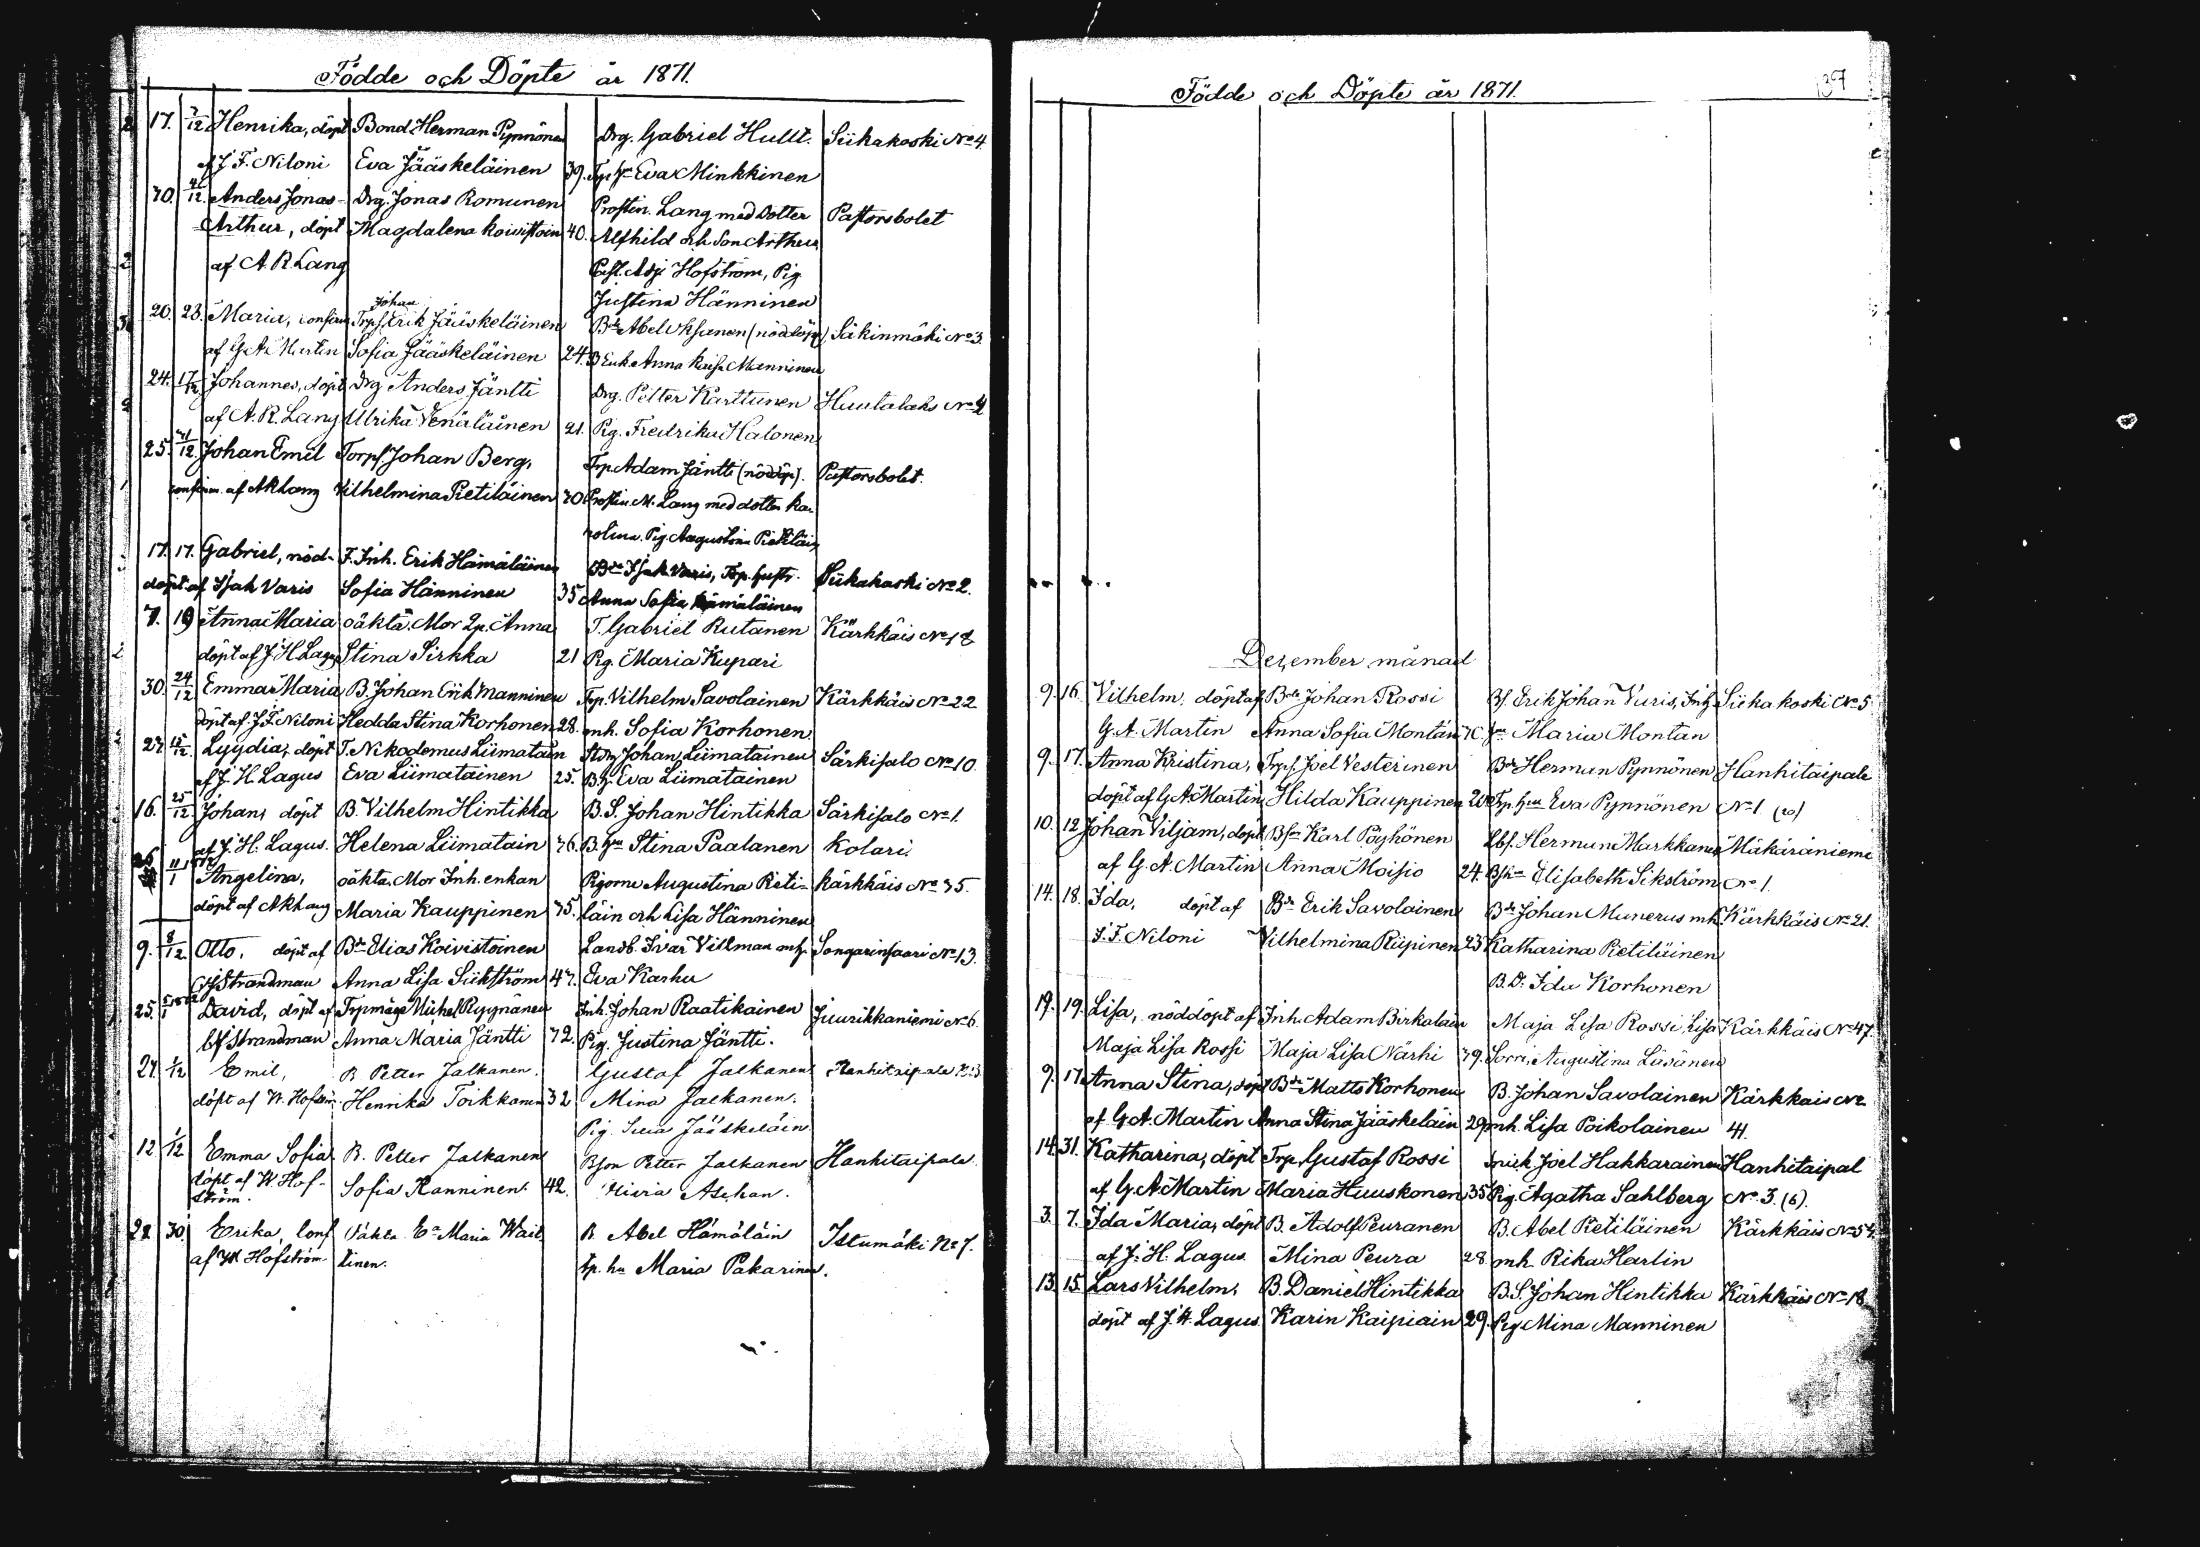 Födde och Döpte år 1871.
17. 7/12 Henrika, döpt Bond. Herman Pynnönen Drg. Gabriel Hultt. Siikakoski No 4.
af J. F. Niloni Eva Jääskeläinen 39. Eva Minkkinen
30. 4/12 Anders Jonas Drg. Jonas Romunen Prostin. Lang med dotter Pastorsbolet
Arthur, döpt Magdalena Koivistoin 40. Alfhild och Son Arthur
af A. R. Lang Past. Adj. Hofström, Pig.
Justina Hänninen
Johan
20. 23. Maria, confirm Trps. Erik Jääskeläinen Bde Abel Uksanen (nöddöp) Säkinmäki No 3.
af G. A. Martin Sofia Jääskeläinen 24. B. Enk. Anna Kaisa Manninen
24. 17/12 Johannes, döpt Drg Anders Jäntti Drg. Petter Karttunen Huutalaks No 2
af A. R. Lang Ulrika Venäläinen 21. Pig. Fredrika Halonen
25. 31/12 Johan Emil Torps. Johan Berg, Trp. Adam Jäntti (nöddöp). Pastorsbolet.
confirm. af A R Lang Vilhelmina Pietiläinen 30 Prostin. M. Lang med dotter Ka-
rolina. Pig. Augustina Pietiläin
17. 17. Gabriel, nöd- F. Inh. Erik Hämäläinen Bde Isak Varis, Trp. hustr. Siikakoski No 2.
döpt af Isak Varis Sofia Hänninen 35 Anna Sofia Hämäläinen
7. 19 Anna Maria oäkta. Mor Lp. Anna T. Gabriel Rutanen Kärkkäis No 18
döpt af J. H. Lagus Stina Sirkka 21 Pig. Maria Kupari
30. 24/12 Emma Maria B. Johan Erik Manninen Trp. Vilhelm Savolainen Kärkkäis No 22
döpt af J. F. Niloni Hedda Stina Korhonen 28. mh. Sofia Korhonen.
27 15/12. Lyydia, döpt T. Nikodemus Liimatain Johan Liimatainen Särkisalo No 10.
af J. H. Lagus Eva Liimatainen 25. Eva Liimatainen
16. 25/12. Johan, döpt B. Vilhelm Hintikka B. S. Johan Hintikka Särkisalo No 1.
af J. H. Lagus. Helena Liimatain 36. B. hu Stina Paalanen Kolari.
26 11/1 1872 Angelina, oäkta. Mor Inh. enkan Pigorne Augustina Pieti- Kärkkäis No 35.
döpt af A R Lang Maria Kauppinen 35. läin och Lisa Hänninen
9. 8/12 Otto, döpt af Bde Elias Koivistoinen Landb. Ivar Villman Songarinsaari No 13.
Strandman Anna Lisa Siikström 47. Eva Karhu
25. 5/1 1872 David, döpt af Trpmåge Mickel Ryynänen Inh. Johan Raatikainen Juurikkaniemi No 6.
Strandman Anna Maria Jäntti 32. Pig. Justina Jäntti.
27. 1/12 Emil, B Petter Jalkanen. Gustaf Jalkanen Hanhitaipale No 3
döpt af W. Hofström Henrika Toikkanen 32 Mina Jalkanen.
Pig. Jääskeläin
12 1/12 Emma Sofia B. Petter Jalkanen Bson Petter Jalkanen Hanhitaipale.
döpt af W. Hof- Sofia Manninen. 42. Aschan.
ström.
22 30 Erika, conf Oäkta. Maria Wait- B Abel Hämäläin Istumäki No 7.
af W. Hofström tinen. tp. hu Maria Pakarinen.
Födde och Döpte år 1871. 137
Dezember månad
9. 16. Vilhelm, döpt af Bde Johan Rossi Bs. Erik Johan Varis, Siikakoski No 5
G. A. Martin Anna Sofia Montàn Maria Montàn
9. 17. Anna Kristina, Trps. Joel Vesterinen Bde Herman Pynnönen Hanhitaipale
döpt af G. A. Martin Hilda Kauppinen 20 Trp. hu Eva Pynnönen No 1 (20)
10. 12 Johan Viljam, döpt Bson Karl Pöyhönen Lbf. Herman Markkanen Mäkäräniemi
af G. A. Martin Anna Moisio 24. Elisabeth Sikström No 1.
14. 18. Ida, döpt af Bde Erik Savolainen Bde Johan Munerus mh. Kärkkäis No 21.
J. F. Niloni Vilhelmina Riipinen 23 Katharina Pietiläinen
B. D. Ida Korhonen
19. 19. Lisa, nöddöpt af Inh. Adam Birkalain Maja Lisa Rossi, Lisa Kärkkäis No 47.
Maja Lisa Rossi Maja Lisa Närhi 39. Sorri, Augustina Läsänen
9. 17. Anna Stina, döpt Bde Matts Korhonen B. Johan Savolainen Kärkkäis No
af G. A. Martin Anna Stina Jääskeläin 29 mh. Lisa Poikolainen 41.
14. 31. Katharina, döpt Trp. Gustaf Rossi Joel Hakkarainen Hanhitaipal
af G. A. Martin Maria Huuskonen 35 Pig. Agatha Sahlberg No. 3. (6).
3. 7. Ida Maria, döpt B. Adolf Peuranen B. Abel Pietiläinen Kärkkäis No 54.
af J. H. Lagus Mina Peura 28. mh. Rika Harlin
13. 15. Lars Vilhelm, B. Daniel Hintikka B. S. Johan Hintikka Kärkkäis No 18
döpt af J. H. Lagus Karin Kaipiain 29. Pig. Mina Manninen